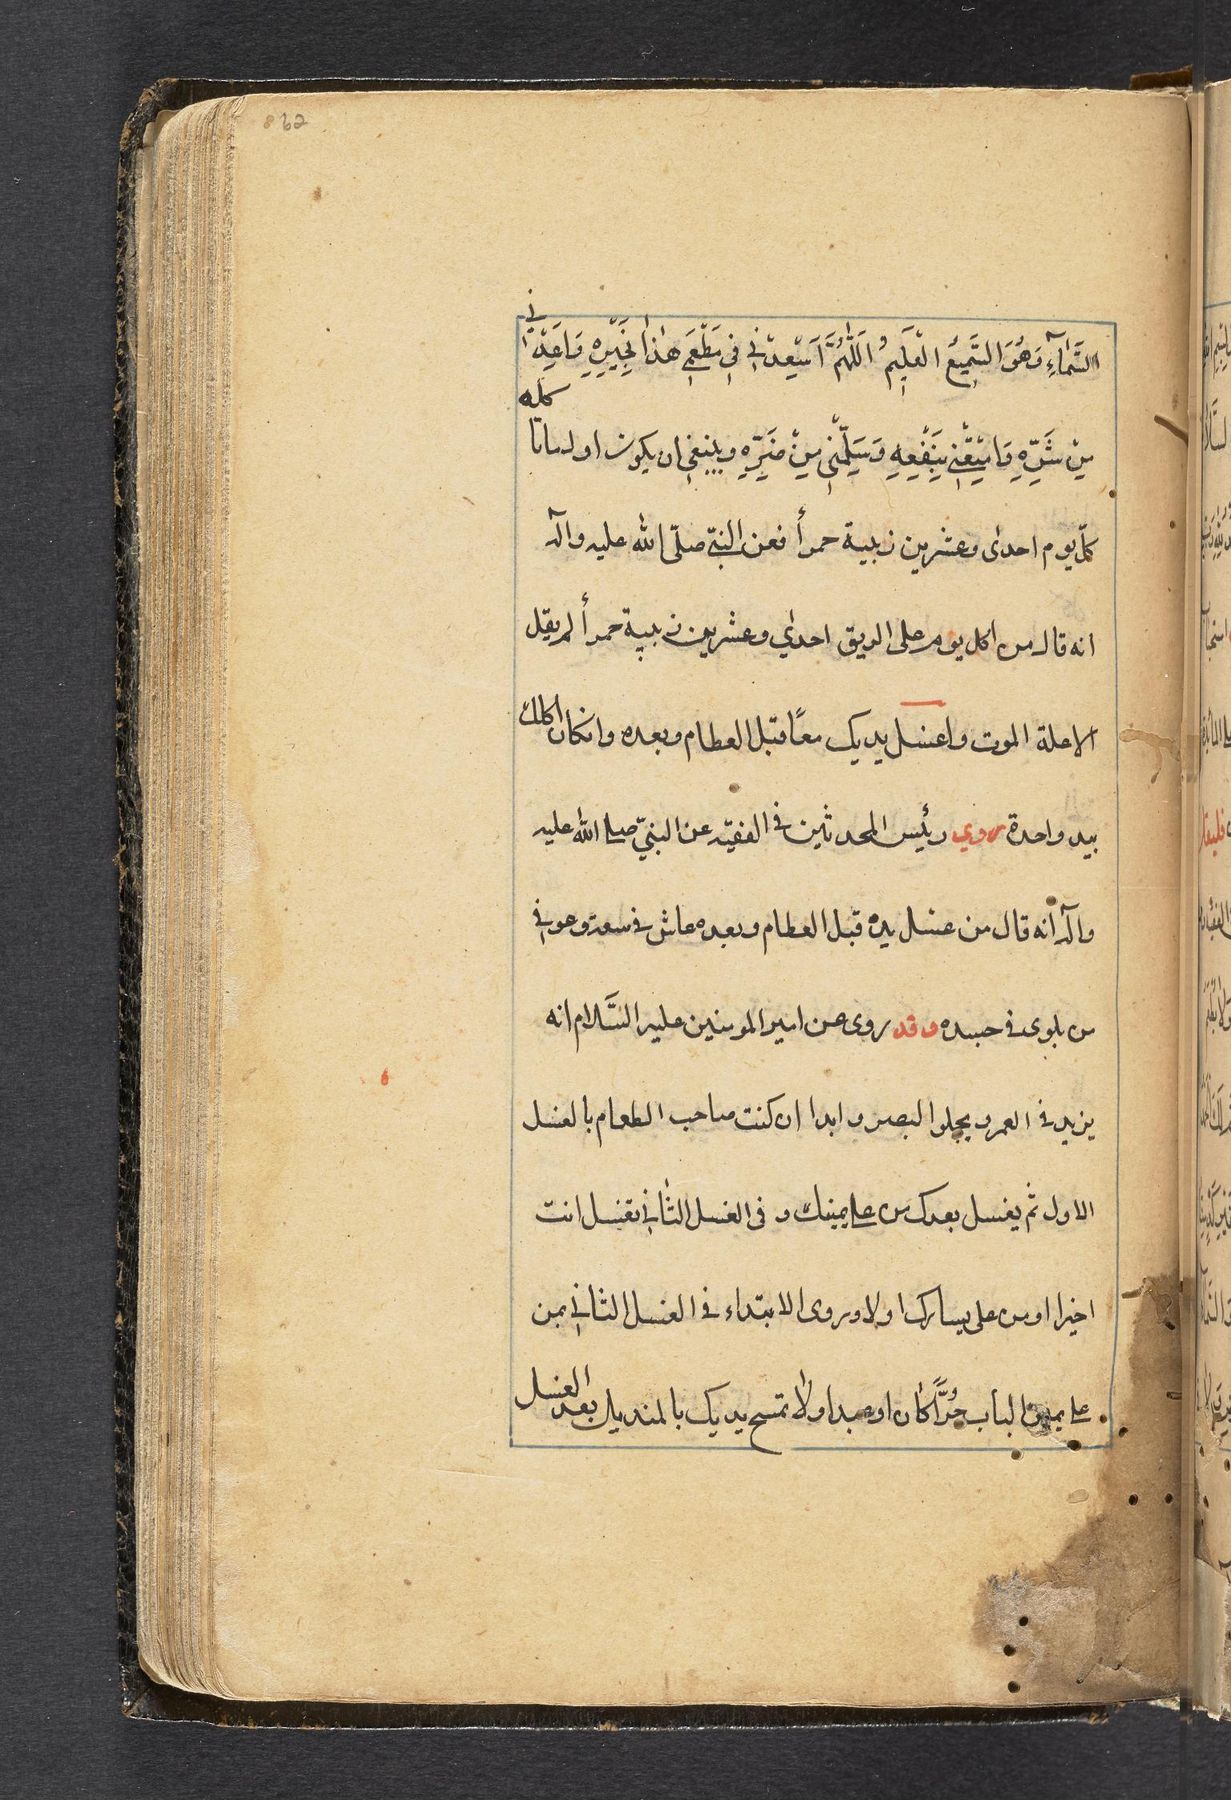 862
السَّمَآءِ وَهُوَ السَّمِيعُ الْعَلِيمُ اَللّٰهُمَّ اَسْعِدْنِي فِي مَطْعَمِي هٰذَا بِخَيْرِهِ وَاَعِذْنِي
مِنْ شَرِّهِ وَاَمْتِعْنِي بِنَفْعِهِ وَسَلِّمْنِي مِنْ ضَرِّهِ وينبغي ان يكون اول ماتاكله
كلّ يوم احدى وعشرين زبيبة حمرأ فعن النبيّ صلّى الله عليه وآله
انه قال من اكل يوم على الريق احدى وعشرين زبيبة حمرأ لم يقل
الا علة الموت واغسل يديك معًا قبل الطعام وبعده وانكان اكلك
بيد واحدة روى رئيس المحدثين في الفقيه عن النبيّ صلى الله عليه
وآله انه قال من غسل يده قبل الطعام وبعده عاش في سعة وعوفي
من بلوى في جسده وقد روى عن امير المومنين عليه السَّلام انه
يزيد في العمر ويجلو البصر وابدا ان كنت صاحب الطعام بالغسل
الاول ثم يغسل بعدك من على يمينك و في الغسل الثاني تغسل انت
اخيرا او من على يسارك اولا وروى الابتداء في الغسل الثاني بمن
على يمين الباب حُرًّا كان او عبدا ولا تمسح يديك بالمنديل بعد الغسل